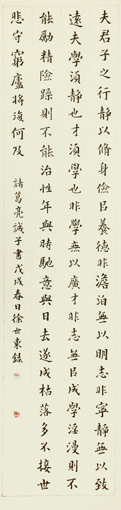 夫君子之行靜以脩身儉㠯養德非澹泊無以明志非寧靜無以致
遠夫學須靜也才須學也非學無以廣才非志無㠯成學淫漫則不
能勵精險躁則不能治性年與時馳意與日去遂成枯落多不接世
悲守窮廬將復何及
諸葛亮誡子書戊戌春日徐世東錄